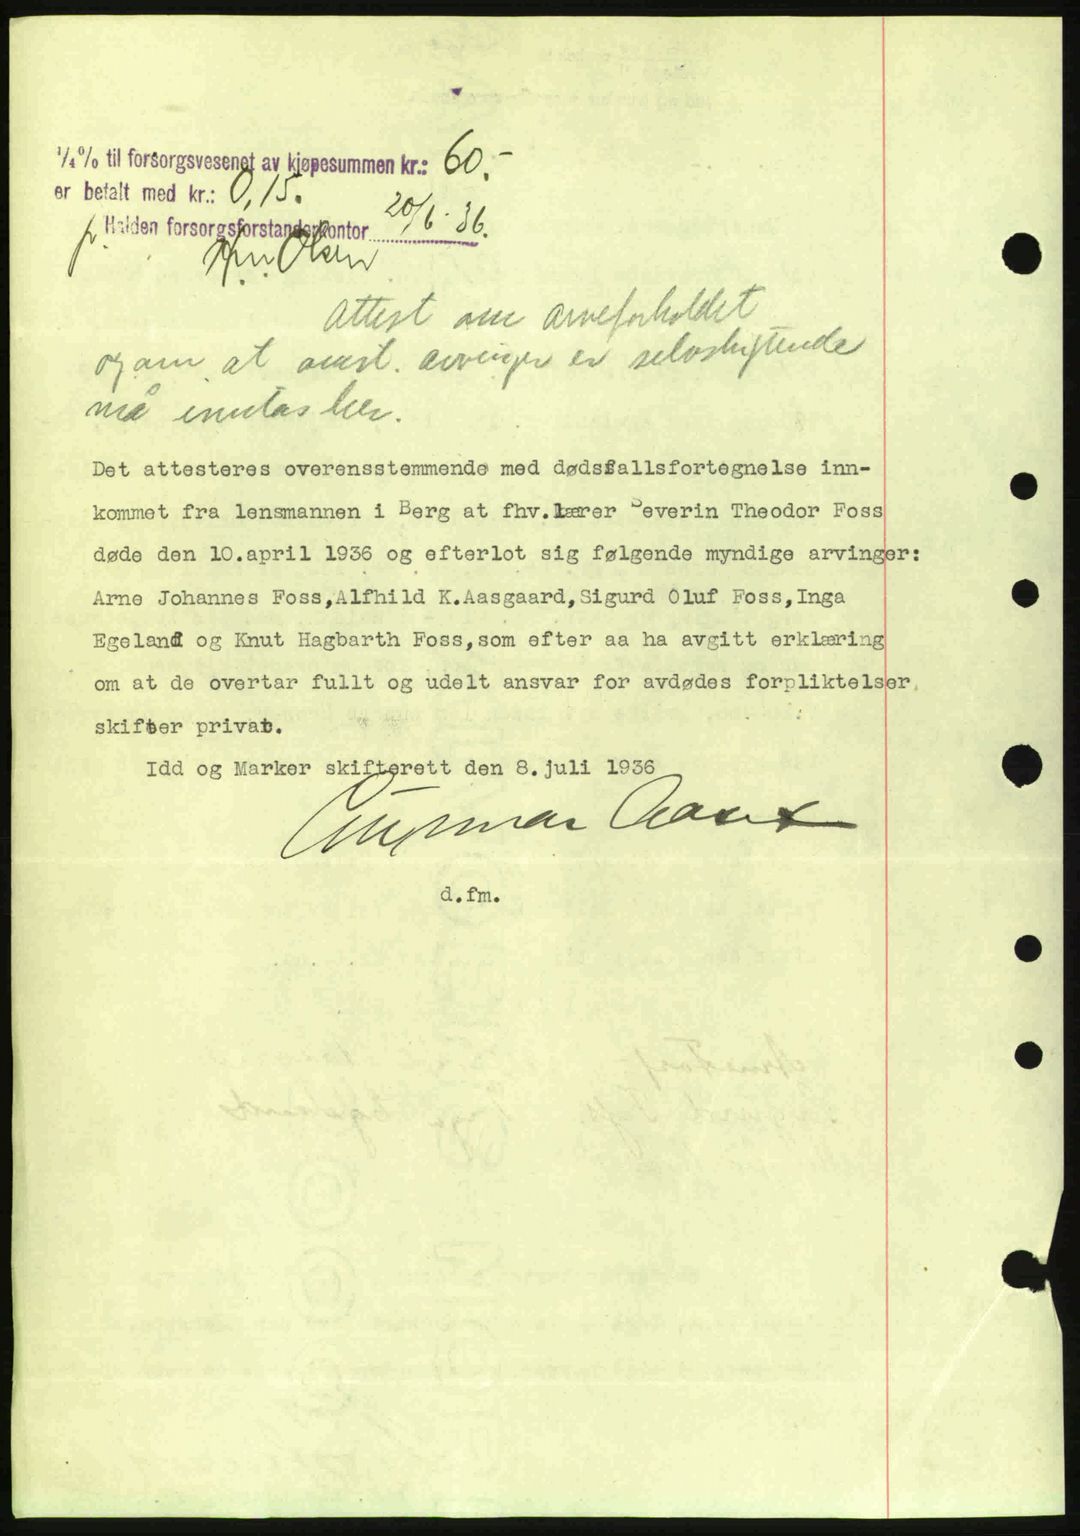 1/4% til forsorgsvesenet av kjøpesummen kr.: 60.-
er betalt med kr.: 0,15.
p. Halden forsorgsforstanderkontor 20/6-36.
Olsen
Attest om arveforholdet
og om at samtl. arvinger er selvskyldende
må inntas her.
Det attesteres overensstemmende med dødsfallsfortegnelse inn-
kommet fra lensmannen i Berg at fhv.lærer Severin Theodor Foss
døde den 10.april 1936 og efterlot sig følgende myndige arvinger:
Arne Johannes Foss,Alfhild K.Aasgaard,Sigurd Oluf Foss,Inga
Egeland og Knut Hagbarth Foss,som efter aa ha avgitt erklæring
om at de overtar fullt og udelt ansvar for avdødes forpliktelser,
skifter privat.
Idd og Marker skifterett den 8.juli 1936
d.fm.